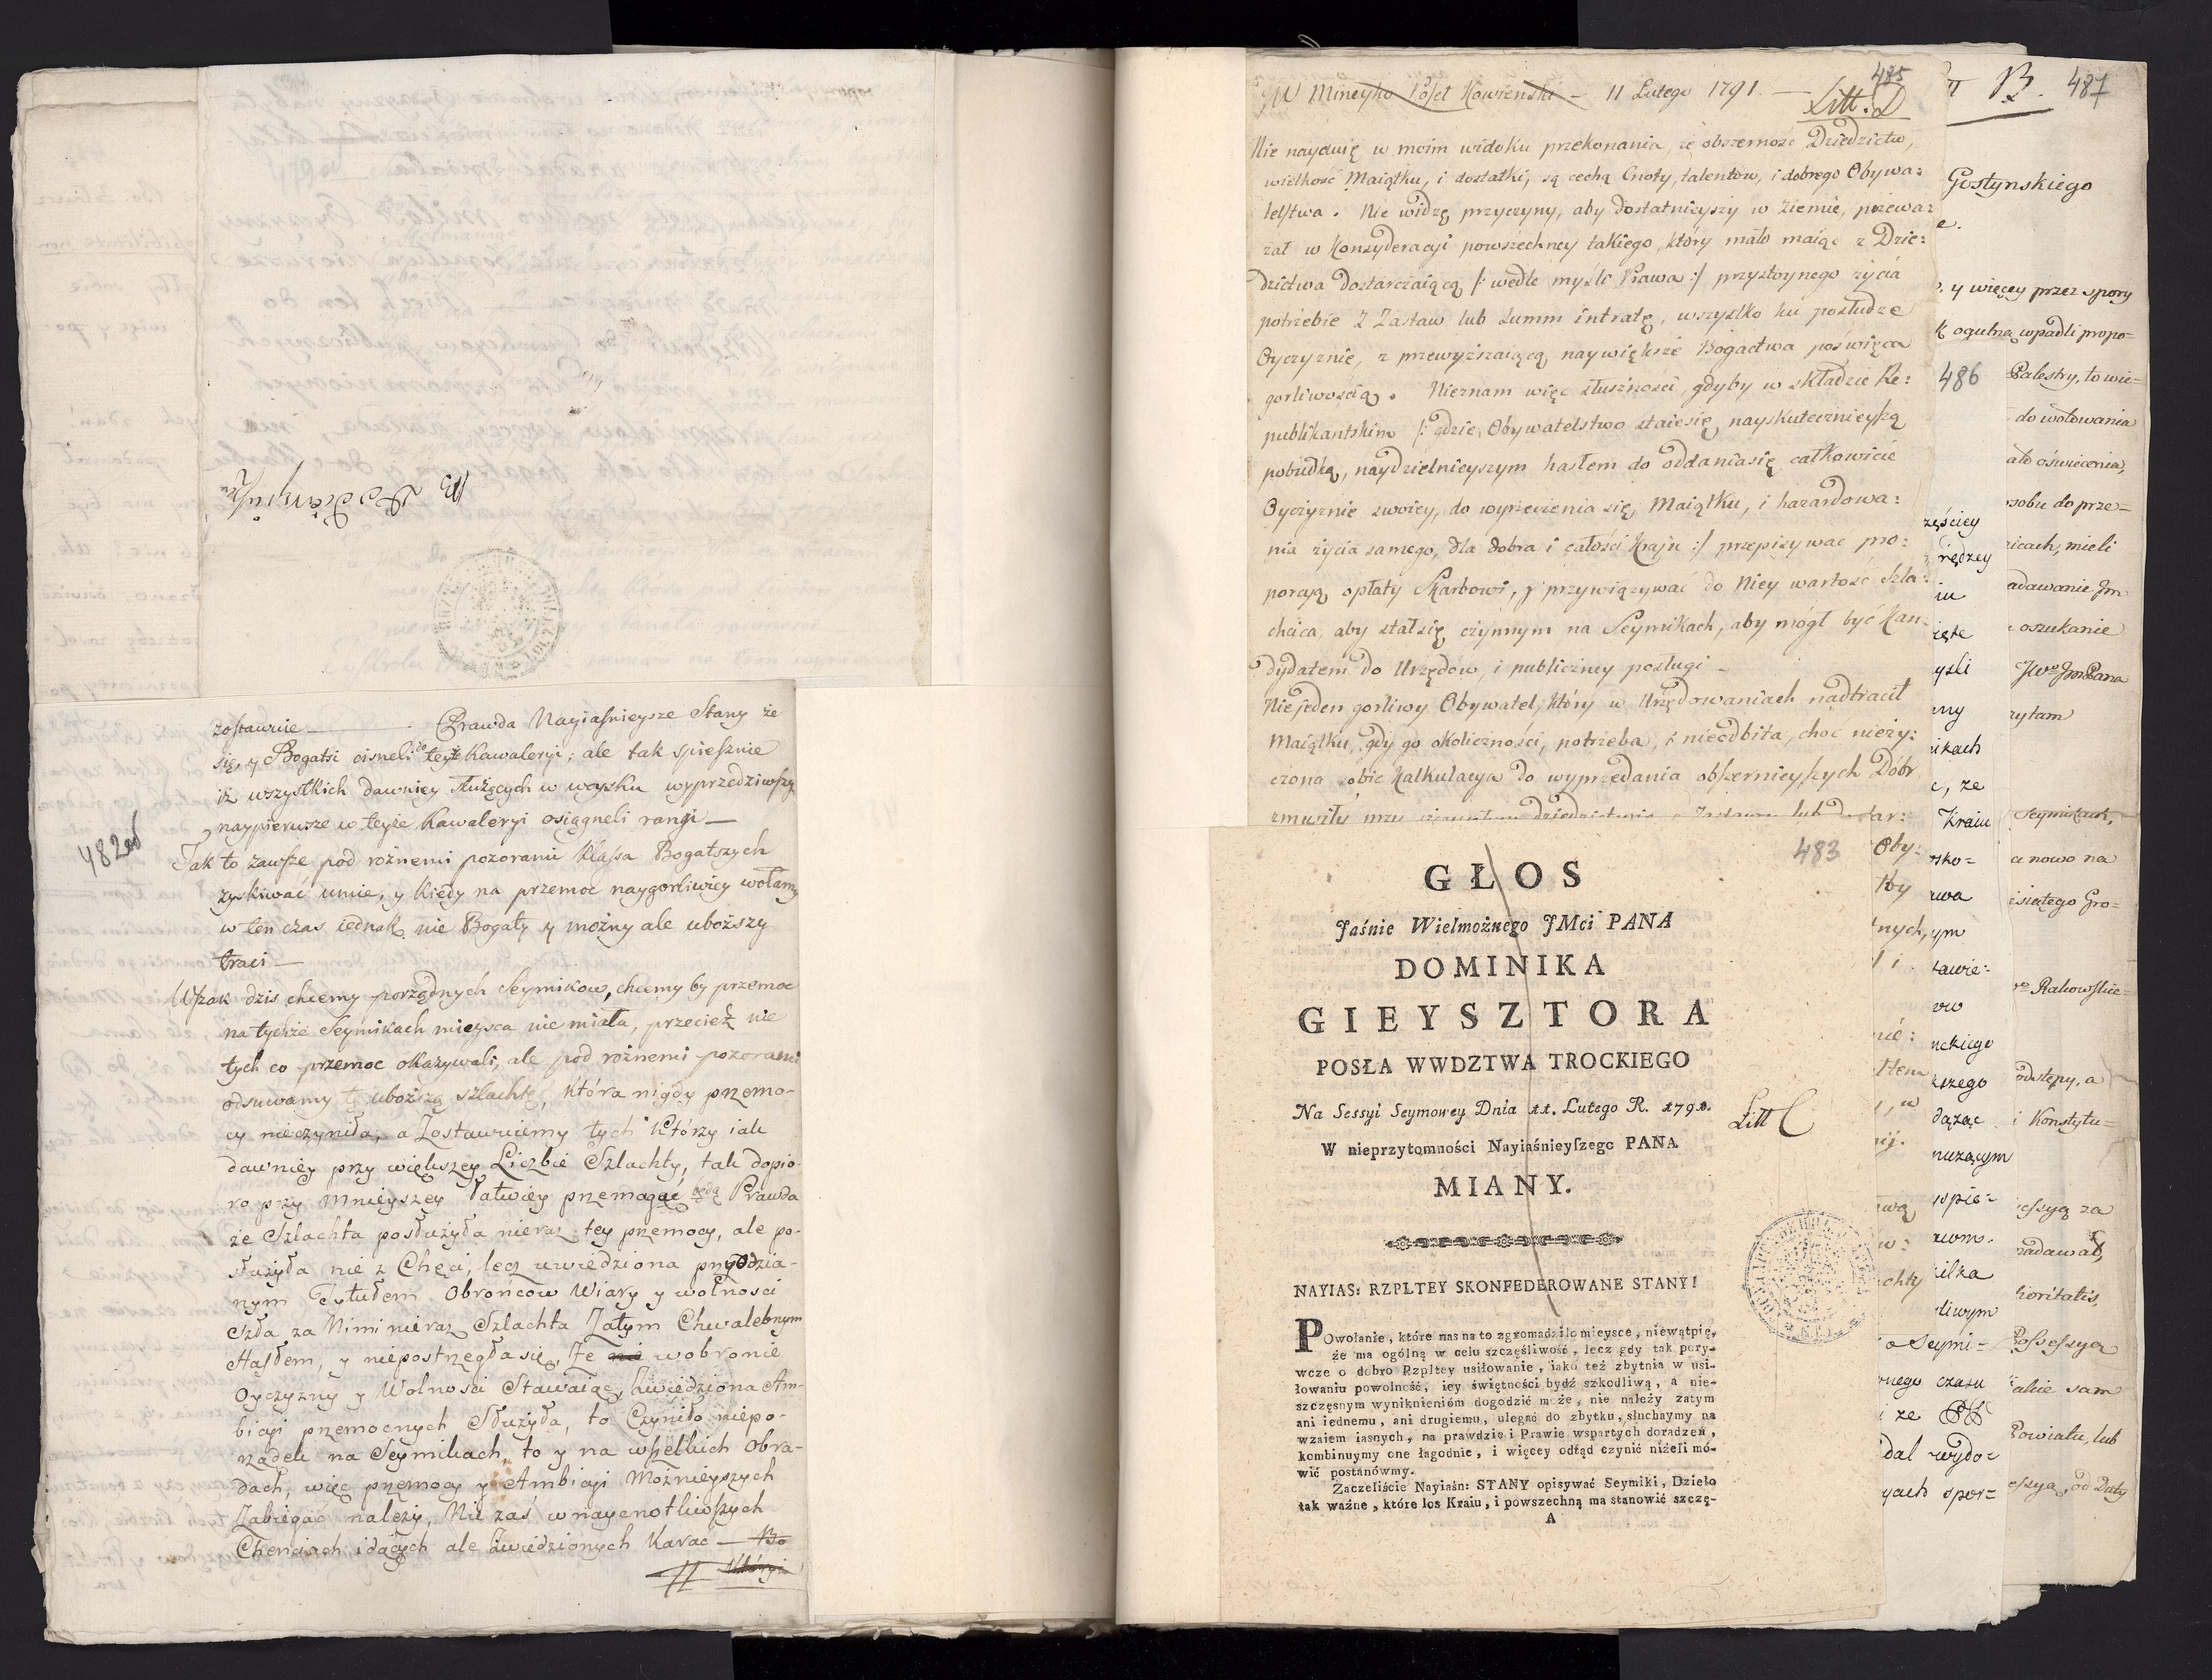 zostawuie — Prawda Nayiaśnieysze Stany że
się y Bogatsi cisneli do teyże Kawaleryi; ale tak spiesznie
iż wszystkich dawniey służących w woysku wyprzedziwszy
naypierwsze w teyże Kawaleryi osiągneli rangi —
482
Tak to zawsze pod rożnemi pozorami Klassa Bogatszych
zyskiwać umie, y kiedy na przemoc naygorliwiey wołamy
w ten czas iednak nie Bogaty y możny ale uboższy
traci —
Wszak dzis chcemy porządnych Seymikow, chcemy by przemoc
na tychże Seymikach mieysca nie miała, przecież nie
tych co przemoc okazywali, ale pod rożnemi pozorami
odsuwamy tę uboższą szlachtę, która nigdy przemo-
cy nieczyniła, a Zostawuiemy tych którzy iak
dawniey przy większey Liczbie Szlachty, tak dopio-
ro przy Mnieyszey łatwiey przemagać będą Prawda
że Szlachta posłużyła nieraz tey przemocy, ale po-
służyła nie z Chęci, lecz uwiedziona przyodzia-
nym Tytułem Obrońcow Wiary y wolności
Szła za Nimi nieraz Szlachta Zatym Chwalebnym
Hasłem, y niepostrzegła się Że nie w obronie
Oyczyzny y Wolności Stawaiąc, uwiedziona Am-
bicyi przemocnych Służyła, to Czyniło niepo-
rządek na Seymikach, to y na wszelkich Obra-
dach, więc przemocy y Ambicyi Możnieyszych
Zabiegać należy, Nie zaś w naycnotliwszych
Chenciach idących ale uwiedzionych Karać — Bo
Którzy
JW Mineyko Poseł Kowieński — 11 Lutego 1791. —
485
Litt. D
Nie nayduię w moim widoku przekonania, że obszerność Dziedzictw,
wielkość Maiątku, i dostatki, są cechą Cnoty, talentow, i dobrego Obywa:
telstwa. Nie widzę przyczyny, aby dostatnieyszy w Ziemie, przewa:
żał w Konsyderacyi powszechney takiego, który mało maiąc z Dzie:
dzictwa dostarczaiącą /: wedle myśli Prawa :/ przystoynego życia
potrzebie z Zastaw lub Summ intratę, wszystko ku posłudze
Oyczyznie, z przewyższaiącą naywiększe Bogactwa poświęca
gorliwością. Nieznam więc słuszności, gdyby w składzie Re:
publikantskim /: gdzie Obywatelstwo staie się nayskutecznieyszą
pobudką, naydzielnieyszym hasłem do oddania się całkowicie
Oyczyznie swoiey, do wyrzeczenia się Maiątku, i hazardowa:
nia życia samego, dla dobra i całości Kraju :/ przepisywać pro:
porcyą opłaty Skarbowi, y przywiązywać do Niey wartość Szla:
chcica, aby stał się czynnym na Seymikach, aby mógł być Kan:
dydatem do Urzędow, i publiczney posługi —
Nie jeden gorliwy Obywatel, który w Urzędowaniach nadtracił
Maiątku, gdy go okoliczności, potrzeba, i nieodbita, choć nieży:
czona sobie Kalkulacya do wyprzedania obszernieyszych Dóbr
483
GŁOS
Jaśnie Wielmożnego JMci PANA
DOMINIKA
GIEYSZTORA
POSŁA WWDZTWA TROCKIEGO
Na Sessyi Seymowey Dnia 11. Lutego R. 1791.
W nieprzytomności Nayiaśnieyſzego PANA
MIANY.
Litt C
NAYIAS: RZPLTEY SKONFEDEROWANE STANY!
Powołanie, które nas na to zgromadziło mieysce, niewątpię,
że ma ogólną w celu szczęśliwość, lecz gdy tak pory-
wcze o dobro Rzpltey usiłowanie, iako też zbytnia w usi-
łowaniu powolność, iey świętności bydź szkodliwą, a nie-
szczęsnym wyniknieniom dogodzić może, nie należy zatym
ani iednemu, ani drugiemu, ulegać do zbytku, słuchaymy na
wzaiem iasnych, na prawdzie i Prawie wspartych doradzeń,
kombinuymy one łagodnie, i więcey odtąd czynić niżeli mó-
wić postanówmy.
Zaczeliście Nayiaśn: STANY opisywać Seymiki, Dzieło
tak ważne, które los Kraiu, i powszechną ma stanowić szczę-
A
B. 487
Gostynskiego
y więcey przez spory
ogulną wpadli propo-
486
Palestry, to wie-
do wotowania
oświecenia,
sobu do prze-
mieli
oszukanie
Kraiu
Seymikach,
nowo na
Rakowskie-
odstępy, a
i Konstytu-
za
Possessya
czasu
takie sam
Powiatu, lub
od Daty